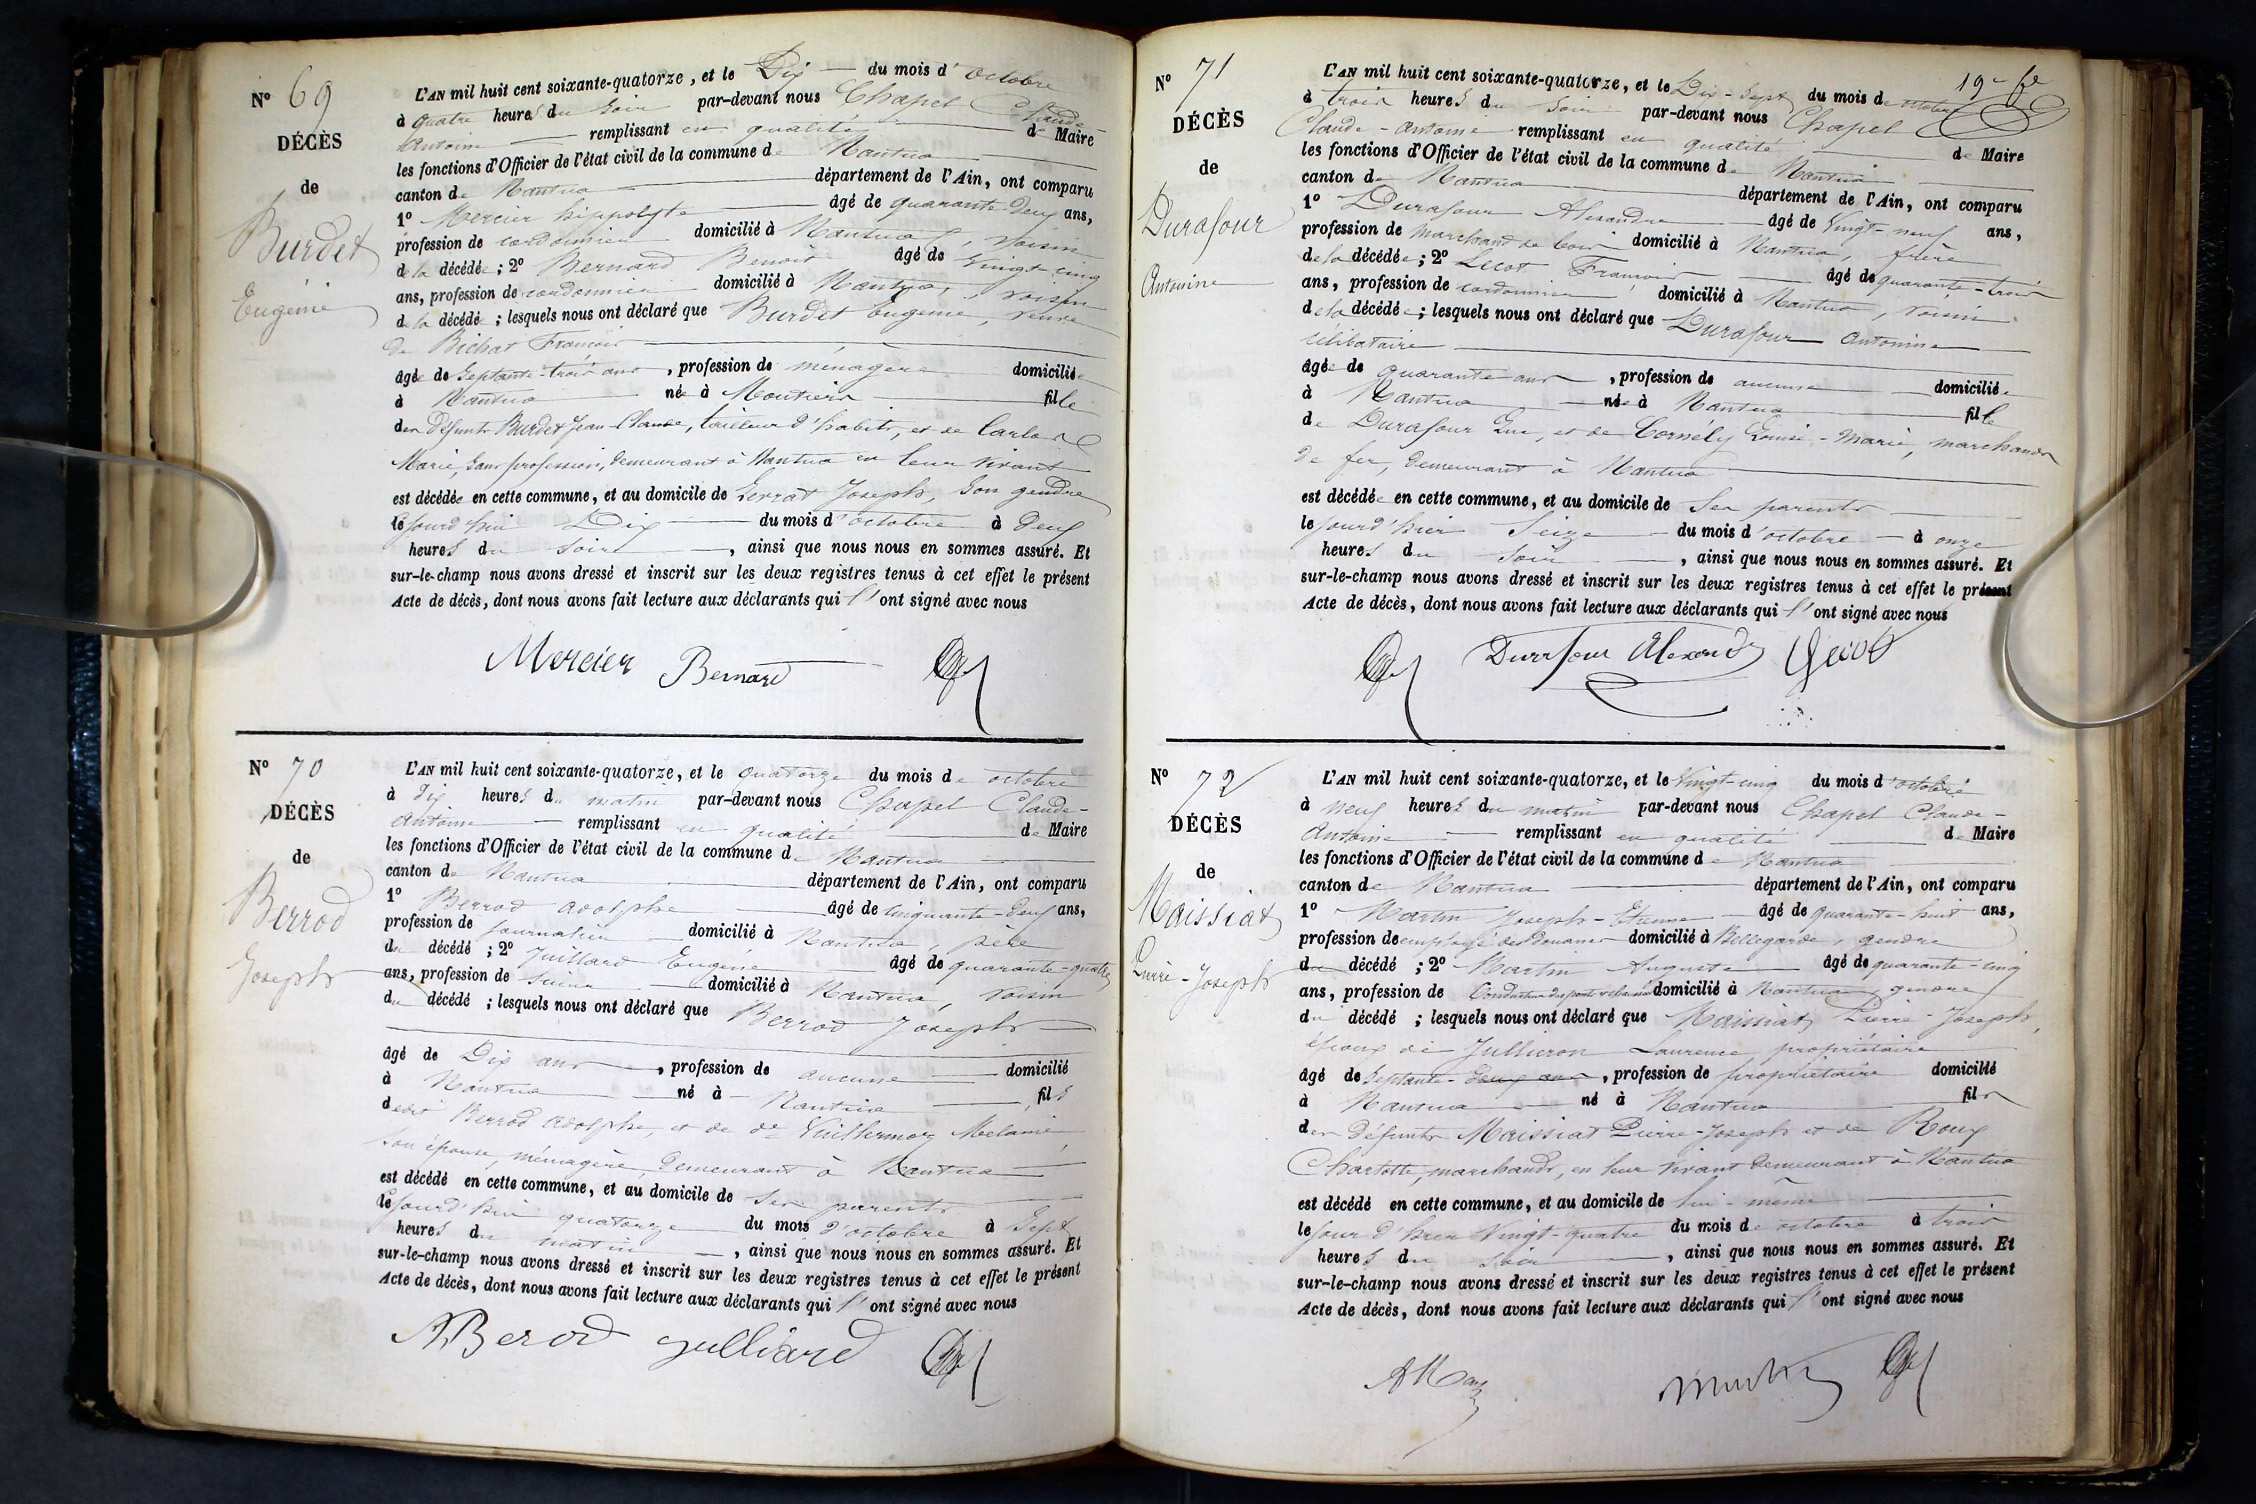 N° 69
DÉCÈS
de
Burdet
Eugénie
L'AN mil huit cent soixante-quatorze, et le Dix du mois d'octobre
à quatre heures du soir par-devant nous Chapel Claude-
Antoine remplissant en qualité de Maire
les fonctions d'Officier de l'état civil de la commune de Nantua
canton de Nantua département de l'Ain, ont comparu
1° Mercier hippolyte âgé de quarante-deux ans,
profession de cordonnier domicilié à Nantua, voisin
de la décédée; 2° Bernard Benoit âgé de vingt-cinq
ans, profession de cordonnier domicilié à Nantua, voisin
de la décédée; lesquels nous ont déclaré que Burdet Eugénie, veuve
de Bichat François
âgée de septante-trois ans, profession de ménagère domiciliée
à Nantua née à Moutiers fille
des défunts Burdet Jean-Claude, tailleur d'habits, et de
Marie, sans profession, demeurant à Nantua en leur vivant
est décédée en cette commune, et au domicile de Serrat Joseph, son gendre
le jourd'hui Dix du mois d'octobre à deux
heures du soir, ainsi que nous nous en sommes assuré. Et
sur-le-champ nous avons dressé et inscrit sur les deux registres tenus à cet effet le présent
Acte de décès, dont nous avons fait lecture aux déclarants qui l'ont signé avec nous
Mercier Bernard
N° 70
DÉCÈS
de
Berrod
Joseph
L'AN mil huit cent soixante-quatorze, et le quatorze du mois de octobre
à dix heures du matin par-devant nous Chapel Claude-
Antoine remplissant en qualité de Maire
les fonctions d'Officier de l'état civil de la commune de Nantua
canton de Nantua département de l'Ain, ont comparu
1° Berrod adolphe âgé de cinquante-deux ans,
profession de journalier domicilié à Nantua, père
du décédé; 2° Juillard Eugène âgé de quarante-quatre
ans, profession de domicilié à Nantua, voisin
du décédé; lesquels nous ont déclaré que Berrod Joseph
âgé de Dix ans, profession de aucune domicilié
à Nantua né à Nantua fils
dedit Berrod adolphe, et de de Vuillermoz Mélanie,
son épouse, ménagère, demeurant à Nantua
est décédé en cette commune, et au domicile de ses parents
le jourd'hui quatorze du mois d'octobre à sept
heures du matin, ainsi que nous nous en sommes assuré. Et
sur-le-champ nous avons dressé et inscrit sur les deux registres tenus à cet effet le présent
Acte de décès, dont nous avons fait lecture aux déclarants qui l'ont signé avec nous
A Berod Julliard
19e fe
N° 71
DÉCÈS
de
Durafour
Antonine
L'AN mil huit cent soixante-quatorze, et le Dix-sept du mois de octobre
à trois heures du soir par-devant nous Chapel
Claude-Antoine remplissant en qualité de Maire
les fonctions d'Officier de l'état civil de la commune de Nantua
canton de Nantua département de l'Ain, ont comparu
1° Durafour Alexandre âgé de vingt-neuf ans,
profession de marchand de bois domicilié à Nantua, frère
de la décédée; 2° Lecot François âgé de quarante-trois
ans, profession de cordonnier domicilié à Nantua, voisin
de la décédée; lesquels nous ont déclaré que Durafour Antonine
célibataire
âgée de quarante ans, profession de aucune domiciliée
à Nantua née à Nantua fille
de Durafour Luc, et de Cornély Louise-Marie, marchands
de fer, demeurant à Nantua
est décédée en cette commune, et au domicile de ses parents
le jourd'hier seize du mois d'octobre à onze
heures du soir, ainsi que nous nous en sommes assuré. Et
sur-le-champ nous avons dressé et inscrit sur les deux registres tenus à cet effet le présent
Acte de décès, dont nous avons fait lecture aux déclarants qui l'ont signé avec nous
Durafour Alexandre
N° 72
DÉCÈS
de
Maissiat
Pierre-Joseph
L'AN mil huit cent soixante-quatorze, et le vingt-cinq du mois d'octobre
à neuf heures du matin par-devant nous Chapel Claude-
Antoine remplissant en qualité de Maire
les fonctions d'Officier de l'état civil de la commune de Nantua
canton de Nantua département de l'Ain, ont comparu
1° Martin Joseph-Etienne âgé de quarante-huit ans,
profession de employé des douanes domicilié à Bellegarde, gendre
du décédé; 2° Martin Auguste âgé de quarante-cinq
ans, profession de Conducteur des ponts et chaussées domicilié à Nantua, gendre
du décédé; lesquels nous ont déclaré que Maissiat Pierre-Joseph,
époux de Jullieron Laurence, propriétaire
âgé de septante-deux ans, profession de propriétaire domicilié
à Nantua né à Nantua fils
des défunts Maissiat Pierre-Joseph et de Roux
Charlotte, marchands, en leur vivant demeurant à Nantua
est décédé en cette commune, et au domicile de lui-même
le jour d'hier vingt-quatre du mois de octobre à trois
heures du soir, ainsi que nous nous en sommes assuré. Et
sur-le-champ nous avons dressé et inscrit sur les deux registres tenus à cet effet le présent
Acte de décès, dont nous avons fait lecture aux déclarants qui l'ont signé avec nous